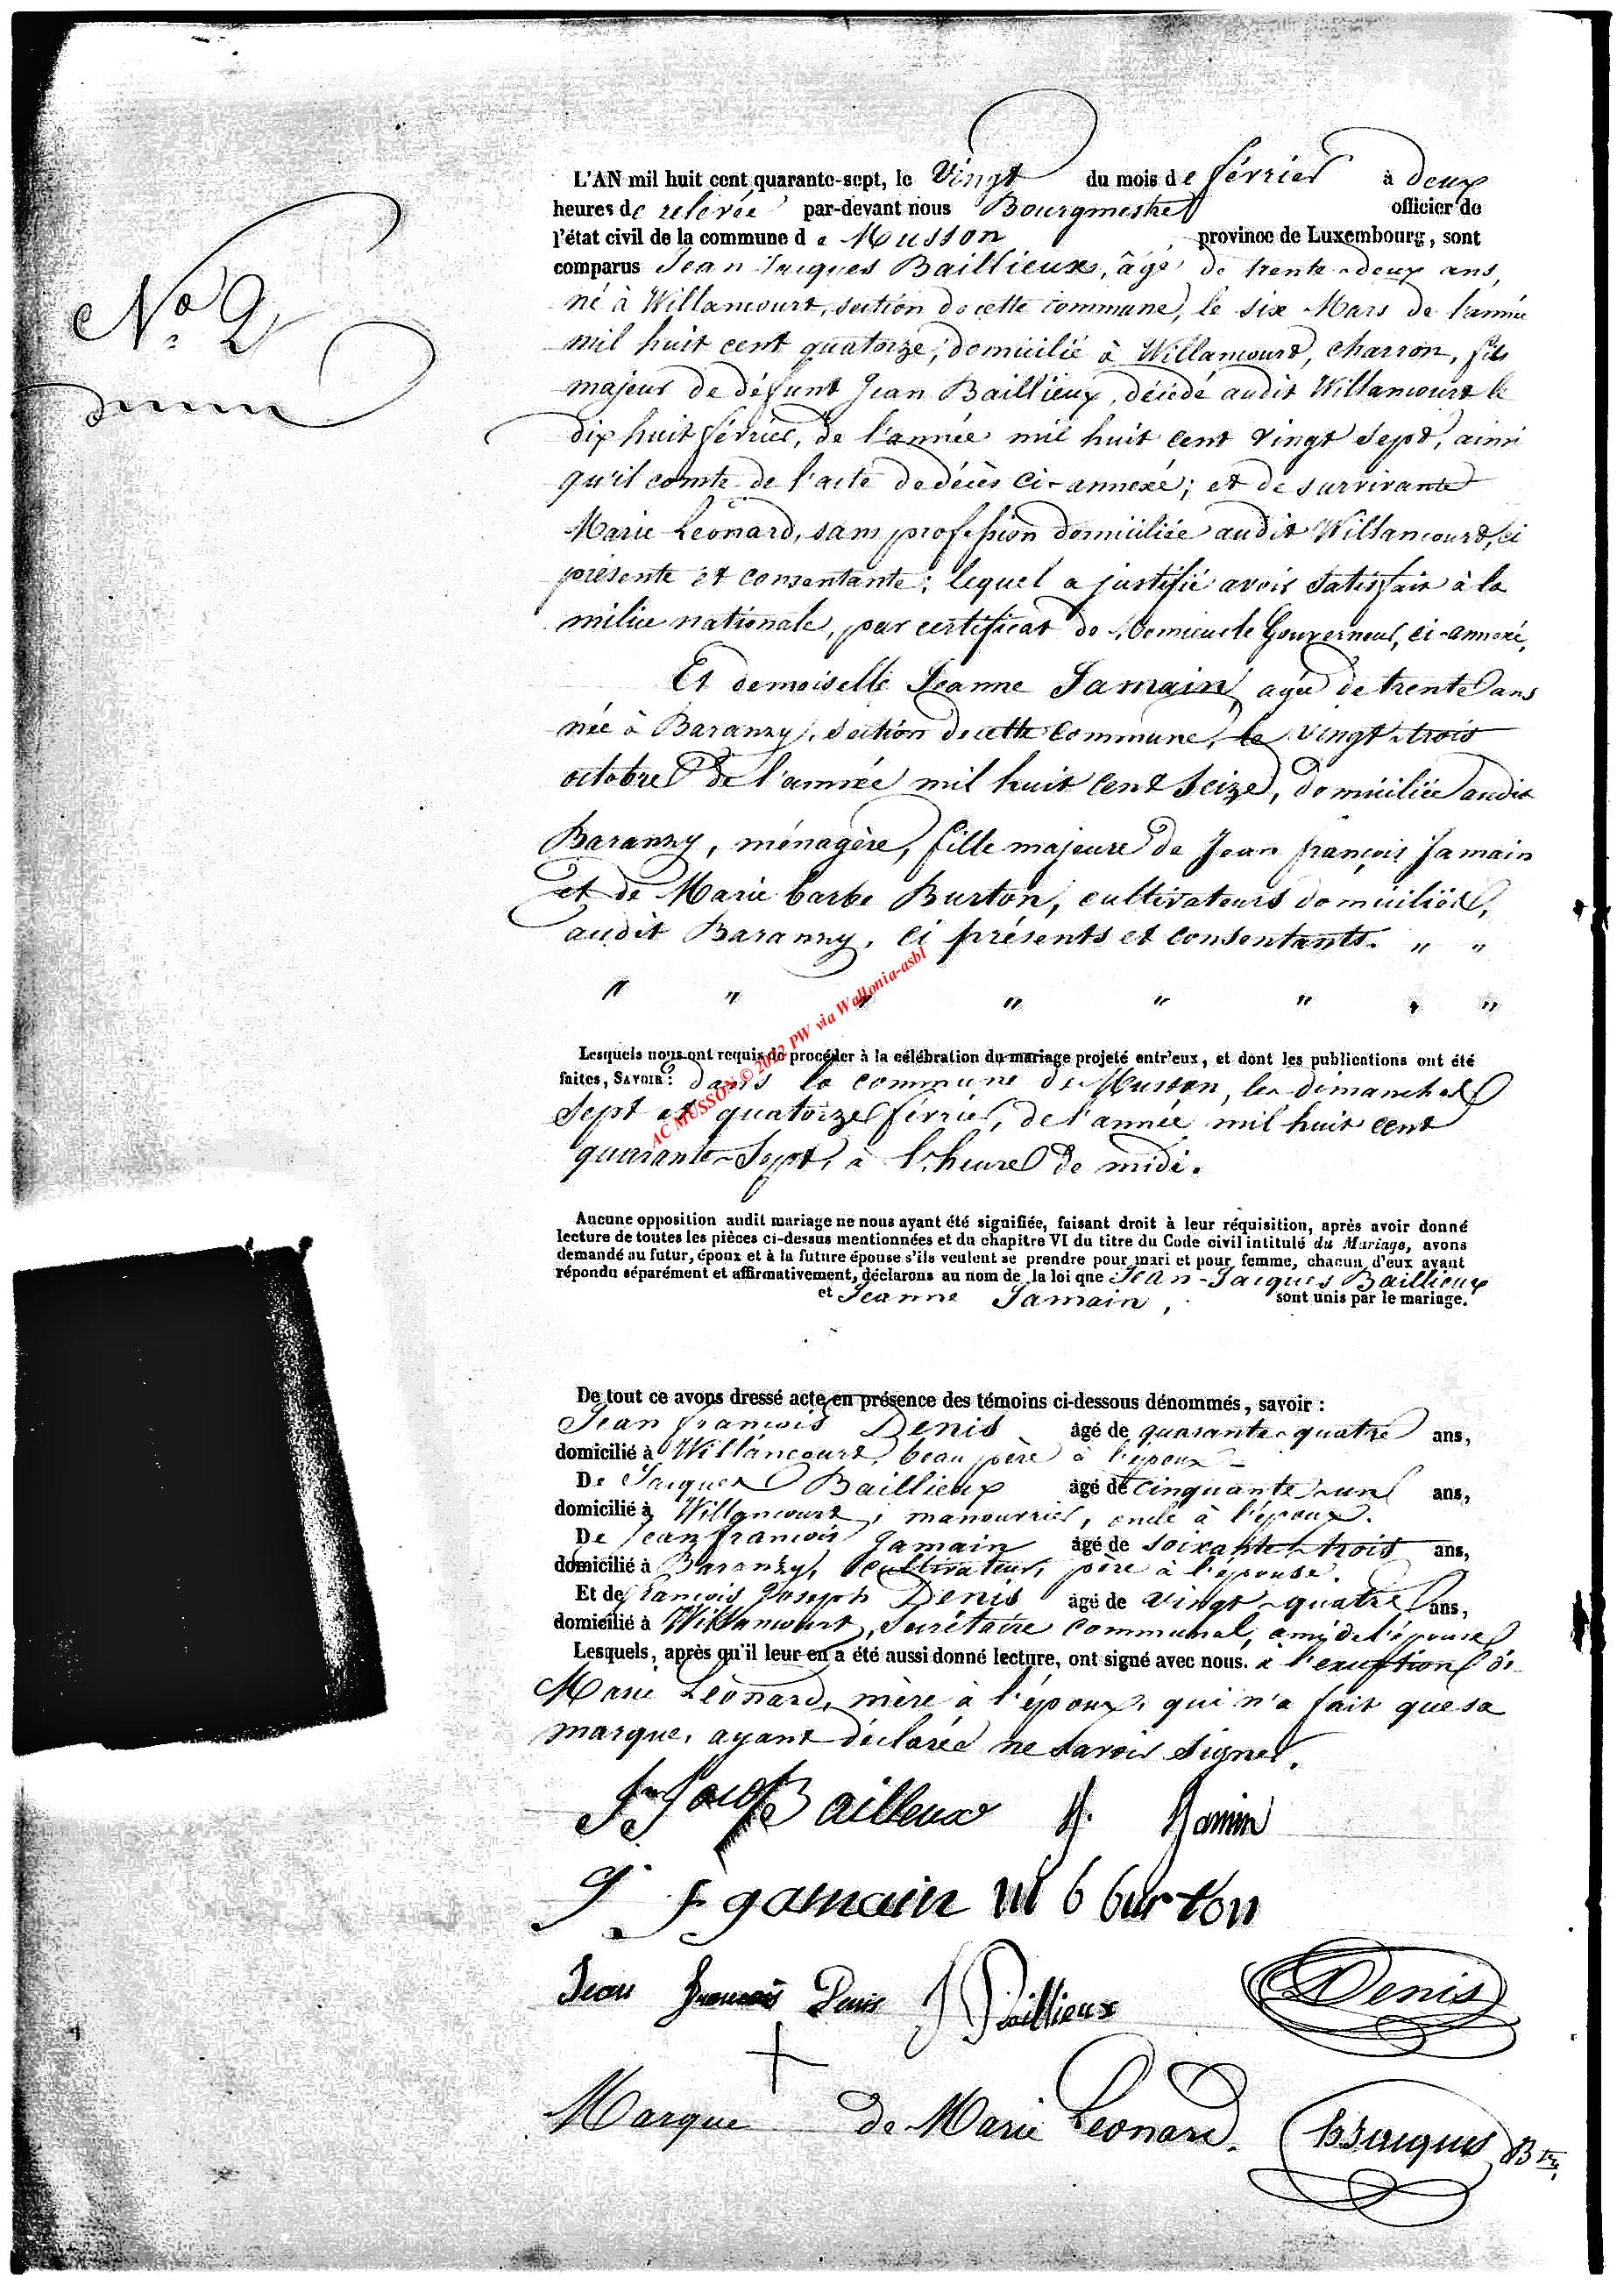 N.º 2
L'AN mil huit cent quarante-sept, le Vingt du mois de février à deux
heures de relevée par-devant nous Bourgmestre officier de
l'état civil de la commune de Musson, province de Luxembourg, sont
comparus Jean Jacques Baillieux, âgé de trente-deux ans,
né à Willancourt, section de cette commune, le six Mars de l'année
mil huit cent quatorze, domicilié à Willancourt, charron, fils
majeur de défunt Jean Baillieux, décédé audit Willancourt le
dix huit février, de l'année mil huit cent vingt sept, ainsi
qu'il comte de l'acte de décès ci-annexé; et de survivante
Marie Léonard, sans profession domiciliée audit Willancourt, ci
présente et consentante; lequel a justifié avoir satisfait à la
milice nationale, par certificat de Gouverneur, ci-annexé,
Et demoiselle Jeanne Jamain, agée de trente ans
née à Baranzy, section de cette commune, le vingt-trois
octobre de l'année mil huit cent seize, domiciliée audit
Baranzy, ménagère, fille majeure de Jean françois Jamain
et de Marie barbe Burton, cultivateurs domiciliés,
audit Baranzy, ci présents et consentants. " "
" " " " " " " "
Lesquels nous ont requis de procéder à la célébration du mariage projeté entr'eux, et dont les publications ont été
faites, SAVOIR: dans la commune de Musson, les dimanches
sept et quatorze février, de l'année mil huit cent
quarante-sept, à l'heure de midi.
AC MUSSON © 2022 PW via Wallonia-asbl
Aucune opposition audit mariage ne nous ayant été signifiée, faisant droit à leur réquisition, après avoir donné
lecture de toutes les pièces ci-dessus mentionnées et du chapitre VI du titre du Code civil intitulé du Mariage, avons
demandé au futur, époux et à la future épouse s'ils veulent se prendre pour mari et pour femme, chacun d'eux ayant
répondu séparément et affirmativement, déclarons au nom de la loi que Jean-Jacques Baillieux
et Jeanne Jamain, sont unis par le mariage.
De tout ce avons dressé acte en présence des témoins ci-dessous dénommés, savoir :
Jean françois Denis âgé de quarante-quatre ans,
domicilié à Willancourt, beau père à l'époux
De Jacques Baillieux âgé de cinquante-un ans,
domicilié à Willancourt, manouvrier, oncle à l'époux.
De Jean françois Jamain âgé de soixante-trois ans,
domicilié à Baranzy, cultivateur, père à l'épouse.
Et de françois Joseph Denis âgé de vingt-quatre ans,
domicilié à Willancourt, Secrétaire communal, ami de l'épouse
Lesquels, après qu'il leur en a été aussi donné lecture, ont signé avec nous. à l'exception de
Marie Léonard, mère à l'époux, qui n'a fait que sa
marque, ayant déclarée ne savoir signer.
Jn Jacq Bailleux J. Jamin
J. f gamain m b burton
Jean francois Denis J Baillieux Denis
Marque de Marie Leonard.